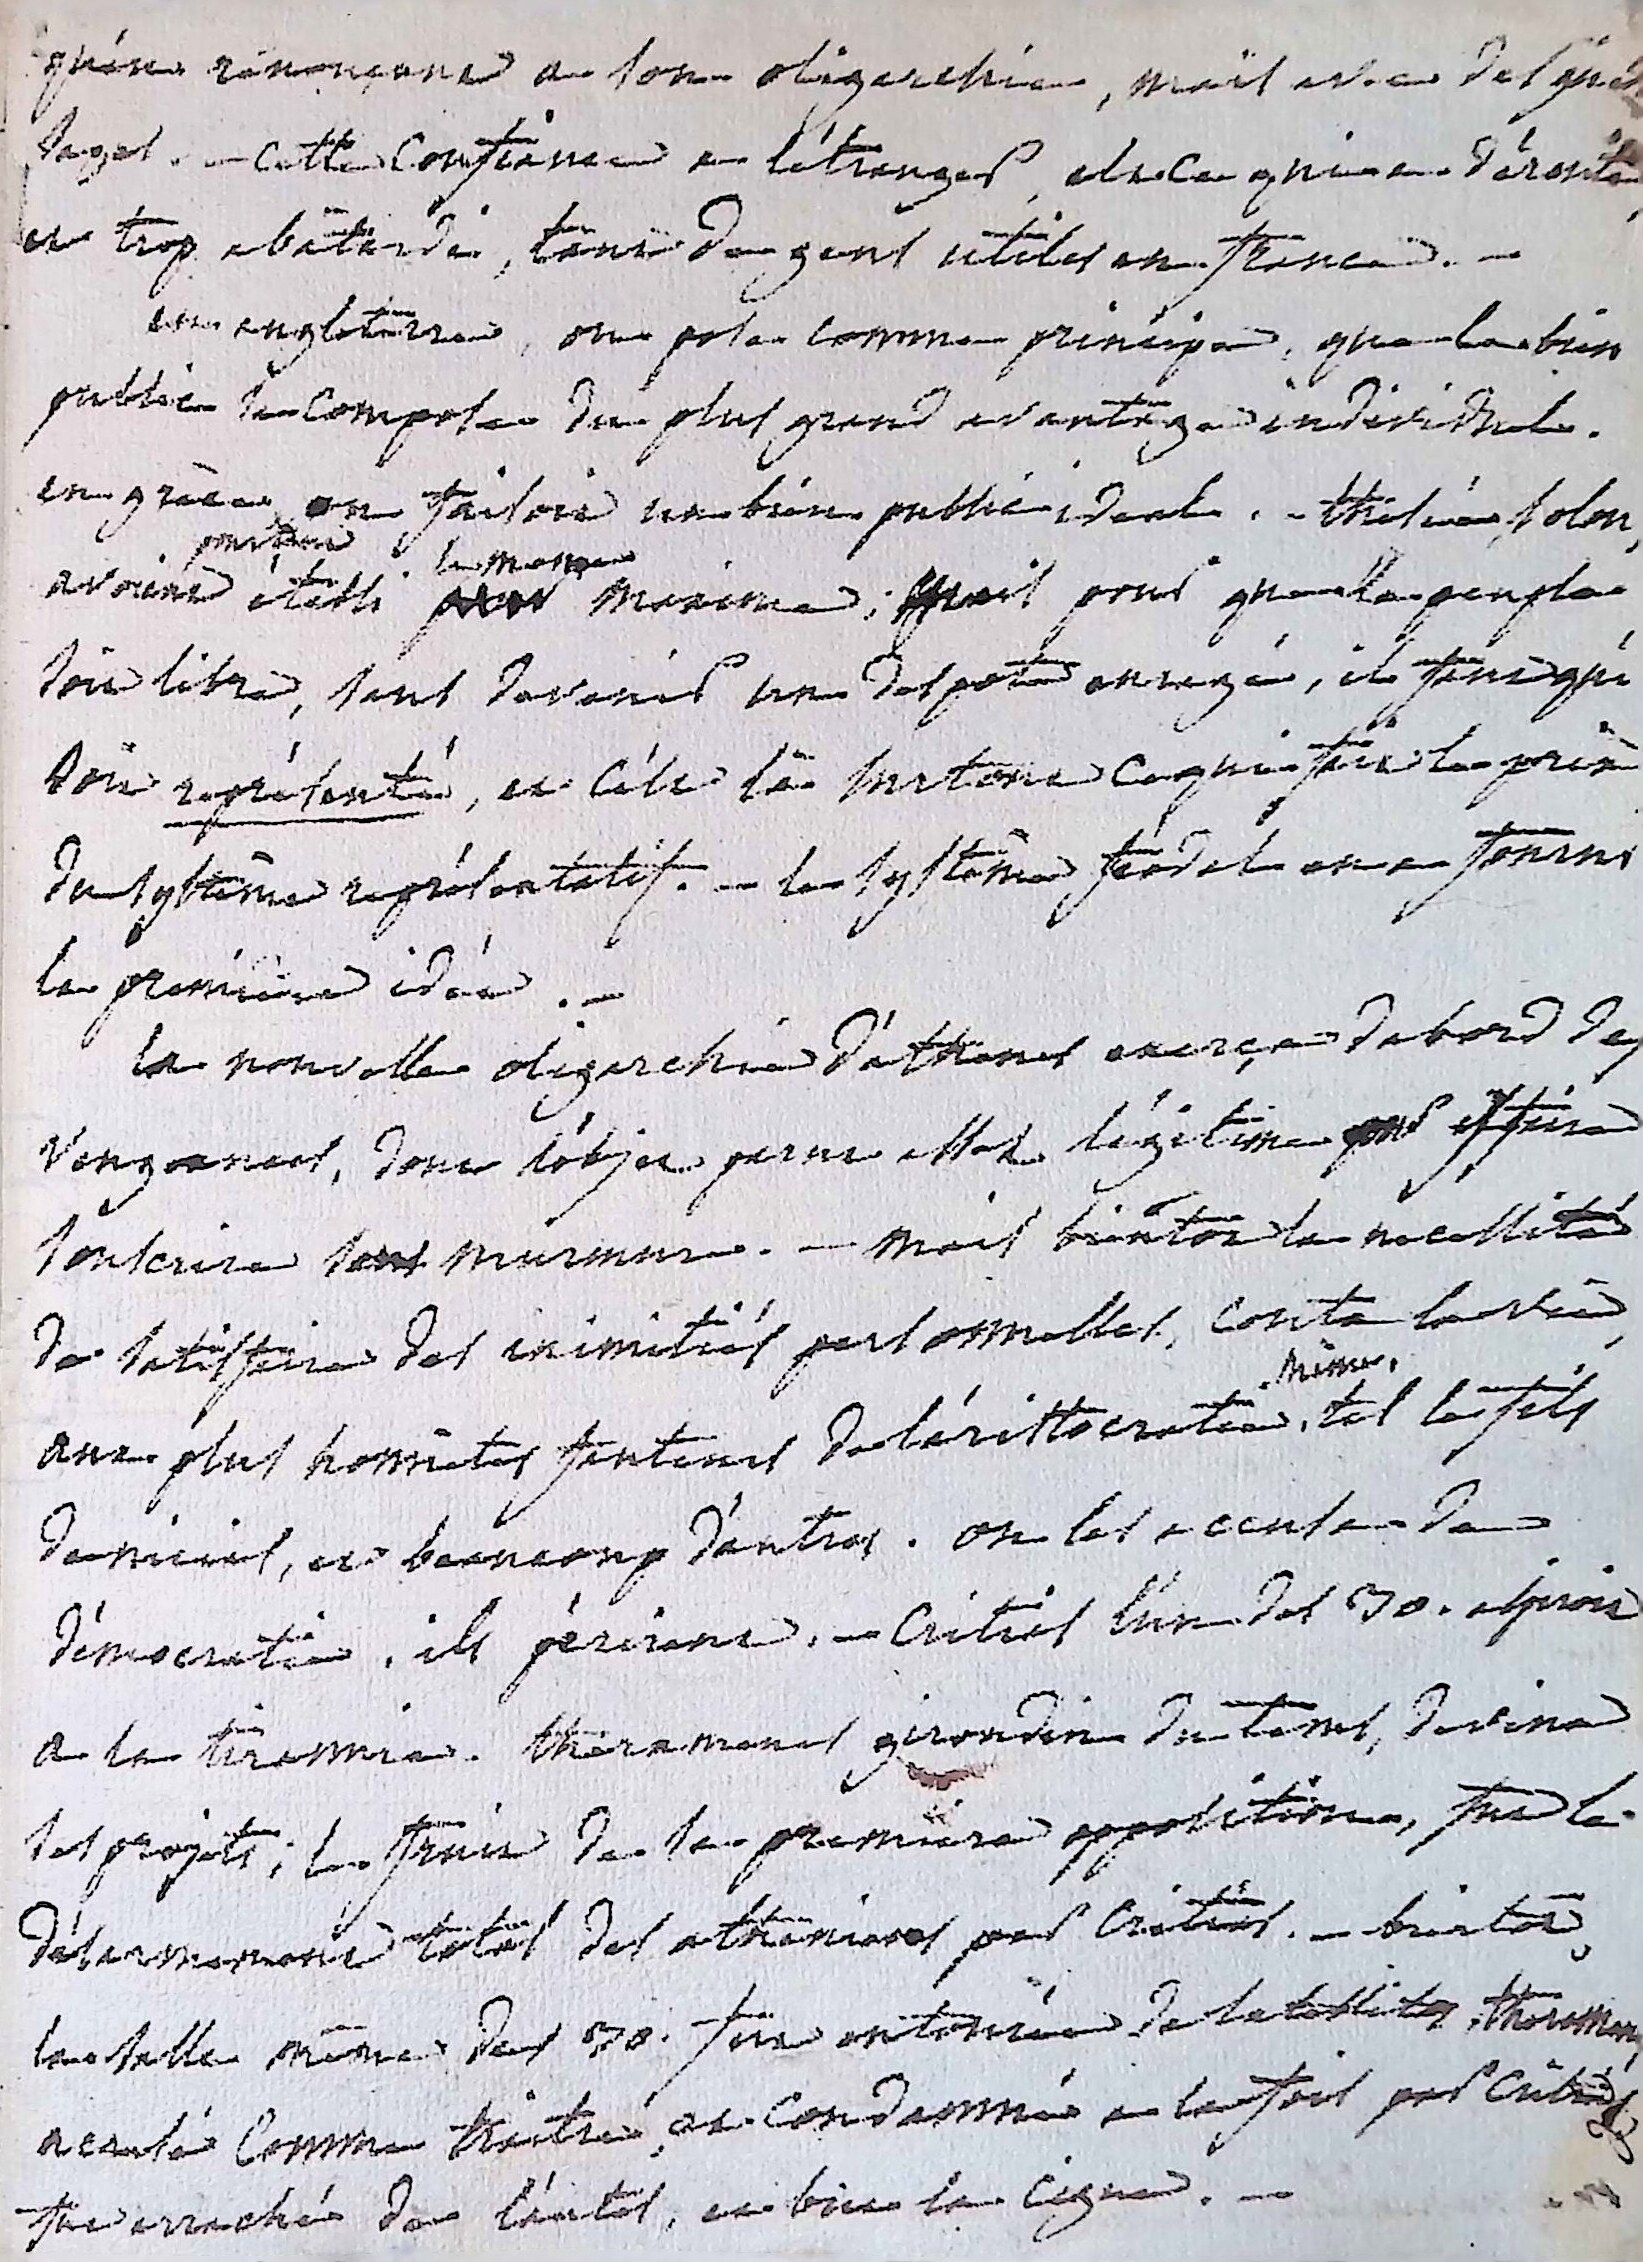 qu'en renonçant a son oligarchie, mais avec des gué
sages. – cette confiance a l'étranger, est ce qui a dérouté
et trop abâtardi, tant de gens utiles en france. –
en angleterre, on pose comme principe, que le bien
public se compose du plus grand avantage individuel.
en grèce, on faisoit un bien public idéal. – thésée, solon,
avoient pourtant établi la même maxime; mais pour que le peuple
soit libre, sans devenir un despote enragé, il faut qu'il
soit représenté, et c'est là surtout ce qui fait le prix
du systême représentatif. – le systême féodal en a fourni
la première idée. –
la nouvelle oligarchie d'athenes exerça d'abord des
vengeances, dont l'objet parut assez légitime pour y faire
souscrire sans murmure. – mais bientôt la nécessité
de satisfaire des inimitiés personnelles, couta la vie,
aux plus honnêtes fauteurs de l'aristocratie même, tel le fils
de nicias, et beaucoup d'autres. on les accusa de
démocratie, ils périrent. – Critias l'un des 30. aspiroit
a la tirannie. théramenes girondin du tems, devina
ses projets; le fruit de la premiere opposition, fut le
désarmement total des athéniens par Critias. – bientôt,
la salle même des 30. fut entourée de satellites, théramene,
accusé comme traître, et condamné a la fois par Critias
fut arraché de l'autel, et but la cigue. –